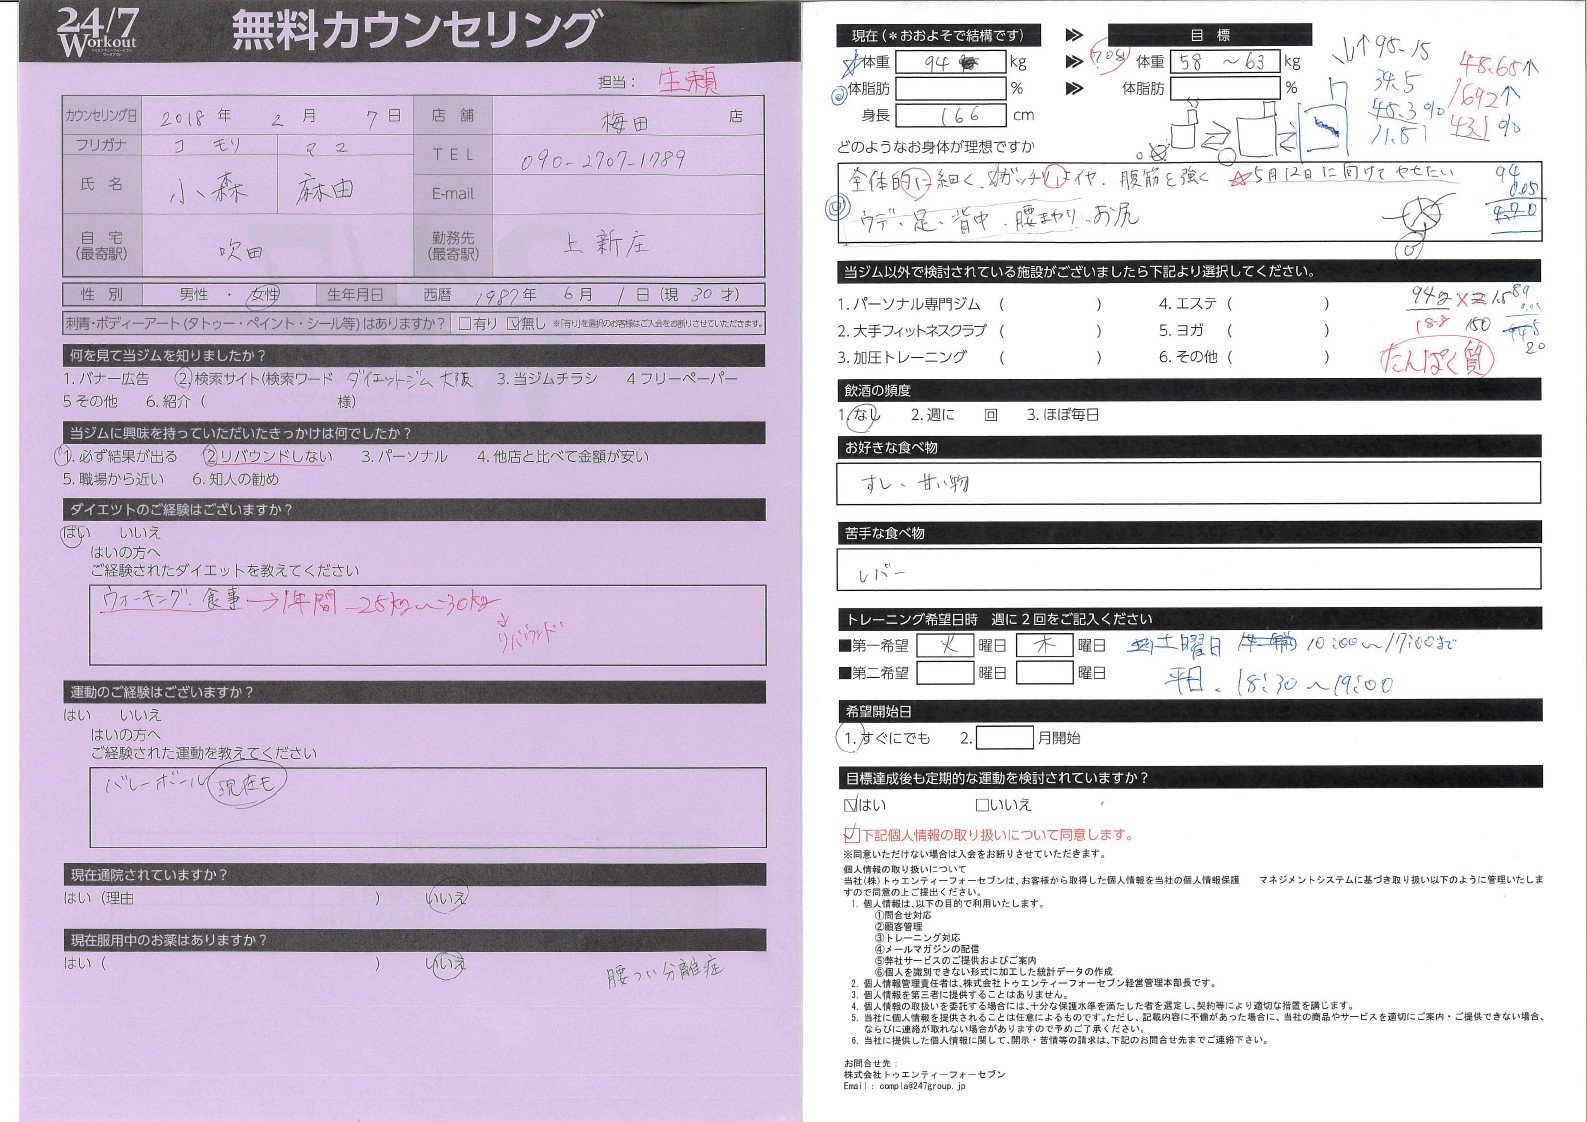 24/7
Workout
無料カウンセリング
担当： 生頼
カウンセリング日 2018 年 2 月 7 日 店 舗 梅田 店
フリガナ コモリ マユ
氏 名 小森 麻由
TEL 090-2707-1789
E-mail
自 宅 (最寄駅) 吹田 勤務先 (最寄駅) 上新庄
性 別 男性 ・ 女性 生年月日 西暦 1987 年 6 月 1 日 (現 30 才)
刺青・ボディーアート(タトゥー・ペイント・シール等)はありますか？ □有り ☑無し ※「有り」を選択のお客様はご入会をお断りさせていただきます。
何を見て当ジムを知りましたか？
1. バナー広告 2. 検索サイト(検索ワード ダイエットジム 大阪 3. 当ジムチラシ 4 フリーペーパー
5 その他 6. 紹介 ( 様)
当ジムに興味を持っていただいたきっかけは何でしたか？
1. 必ず結果が出る 2 リバウンドしない 3. パーソナル 4. 他店と比べて金額が安い
5. 職場から近い 6. 知人の勧め
ダイエットのご経験はございますか？
はい いいえ
はいの方へ
ご経験されたダイエットを教えてください
ウォーキング. 食事 →1年間 -25kg〜-30kg
↓
リバウンド
運動のご経験はございますか？
はい いいえ
はいの方へ
ご経験された運動を教えてください
バレーボール 現在も
現在通院されていますか？
はい (理由 ) いいえ
現在服用中のお薬はありますか？
はい ( ) いいえ
腰つい分離症
現在 (＊おおよそで結構です) 目 標
体重 94 kg 体重 58 〜63 kg
体脂肪 % 体脂肪 %
身長 166 cm
↑95-15
34.5
48.3%
11.81
48.65↑
1692↑
43.1%
どのようなお身体が理想ですか
全体的に細く、ガッチリはイヤ. 腹筋を強く ☆5月12日に向けてやせたい
ウデ・足・背中・腰まわり・お尻
94
0.05
4.70
当ジム以外で検討されている施設がございましたら下記より選択してください。
1. パーソナル専門ジム ( ) 4. エステ ( )
2. 大手フィットネスクラブ ( ) 5. ヨガ ( )
3. 加圧トレーニング ( ) 6. その他 ( )
188 150
20
たんぱく質
飲酒の頻度
1. なし 2. 週に 回 3. ほぼ毎日
お好きな食べ物
すし、甘い物
苦手な食べ物
レバー
トレーニング希望日時 週に2回をご記入ください
■第一希望 火 曜日 木 曜日 土曜日 10:00〜17:00まで
■第二希望 曜日 曜日 平日、18:30〜19:00
希望開始日
1. すぐにでも 2. 月開始
目標達成後も定期的な運動を検討されていますか？
☑はい □いいえ
☑下記個人情報の取り扱いについて同意します。
※同意いただけない場合は入会をお断りさせていただきます。
個人情報の取り扱いについて
当社(株)トゥエンティーフォーセブンは、お客様から取得した個人情報を当社の個人情報保護 マネジメントシステムに基づき取り扱い以下のように管理いたしま
すので同意の上ご提出ください。
1. 個人情報は、以下の目的で利用いたします。
①問合せ対応
②顧客管理
③トレーニング対応
④メールマガジンの配信
⑤弊社サービスのご提供およびご案内
⑥個人を識別できない形式に加工した統計データの作成
2. 個人情報管理責任者は、株式会社トゥエンティーフォーセブン経営管理本部長です。
3. 個人情報を第三者に提供することはありません。
4. 個人情報の取扱いを委託する場合には、十分な保護水準を満たした者を選定し、契約等により適切な措置を講じます。
5. 当社に個人情報を提供されることは任意によるものです。ただし、記載内容に不備があった場合に、当社の商品やサービスを適切にご案内・ご提供できない場合、
ならびに連絡が取れない場合がありますので予めご了承ください。
6. 当社に提供した個人情報に関して、開示・苦情等の請求は、下記のお問合せ先までご連絡下さい。
お問合せ先：
株式会社トゥエンティーフォーセブン
Email : compla@247group.jp